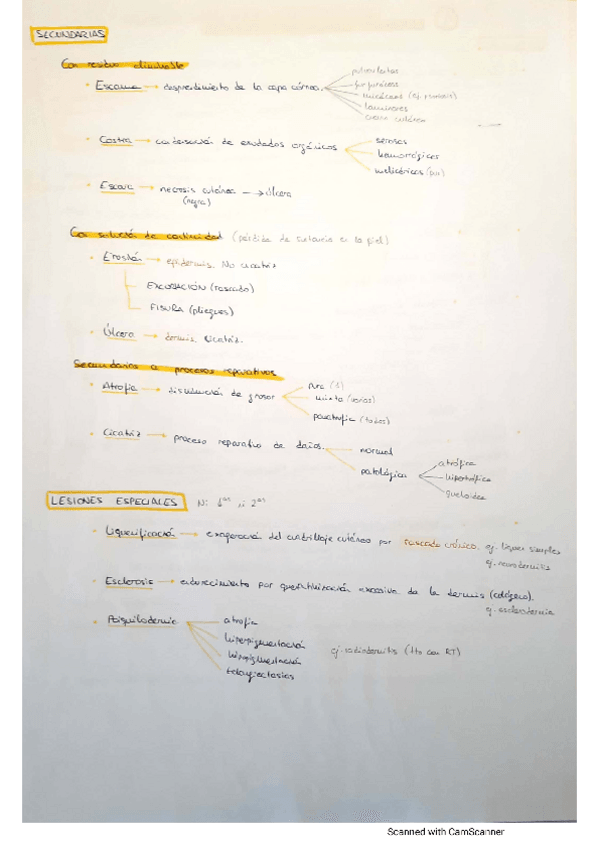 SECUNDARIAS
Con residuo eliminable
• Escama → desprendimiento de la capa córnea.
pulverulentas
furfuráceas
(ej. psoriasis)
laminares
• Costra → condensación de exudados orgánicos
serosas
hemorrágicas
melicéricas (pus)
• Escara → necrosis cutánea → Úlcera
(negra)
Con solución de continuidad (pérdida de sustancia en la piel)
• Erosión → epidermis. No cicatriz
EXCORIACIÓN (rascado)
FISURA (pliegues)
• Úlcera → dermis. Cicatriz.
Secundarias a procesos reparativos
• Atrofia → disminución de grosor
pura (1)
mixta (varias)
panatrofia (todas)
• Cicatriz → proceso reparativo de daños.
normal
patológica
atrófica
hipertrófica
queloidea
LESIONES ESPECIALES Ni 1as ni 2as
• Liquenificación → exageración del cuadrillaje cutáneo por rascado crónico. ej. liquen simplex
ej. neurodermitis
• Esclerosis → endurecimiento por excesiva de la dermis (colágeno).
ej. esclerodermia
• Poiquilodermia
atrofia
hiperpigmentación
hipopigmentación
telangiectasias
ej. radiodermitis (tto con RT)
Scanned with CamScanner